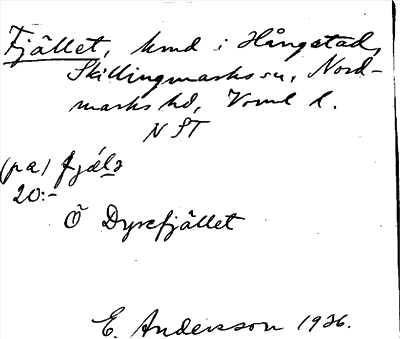 Fjället, hmd i Hångstad,
Skillingmarks sn, Nord-
marks hd, Vrml l.
N ST
(pa) fjælə
20:-
Ö Dyrefjället
E. Andersson 1936.